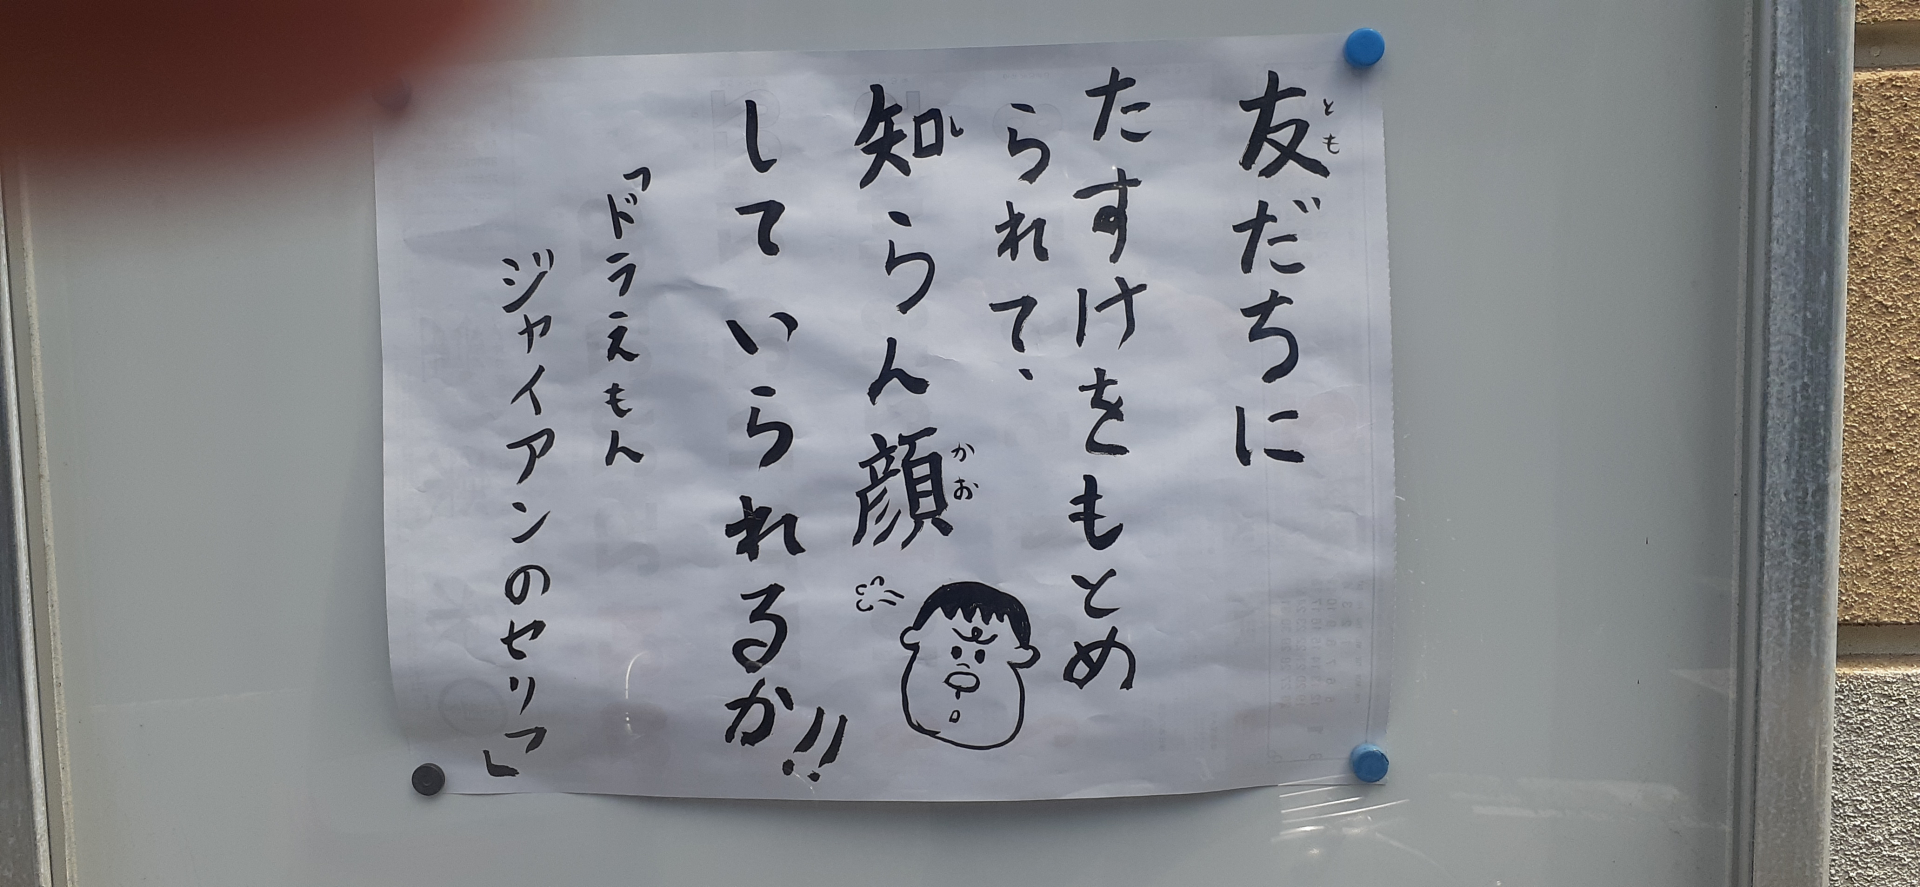 友だちに
とも
たすけをもとめ
られて、
知らん顔
し
かお
していられるか!!
「ドラえもん
ジャイアンのセリフ」